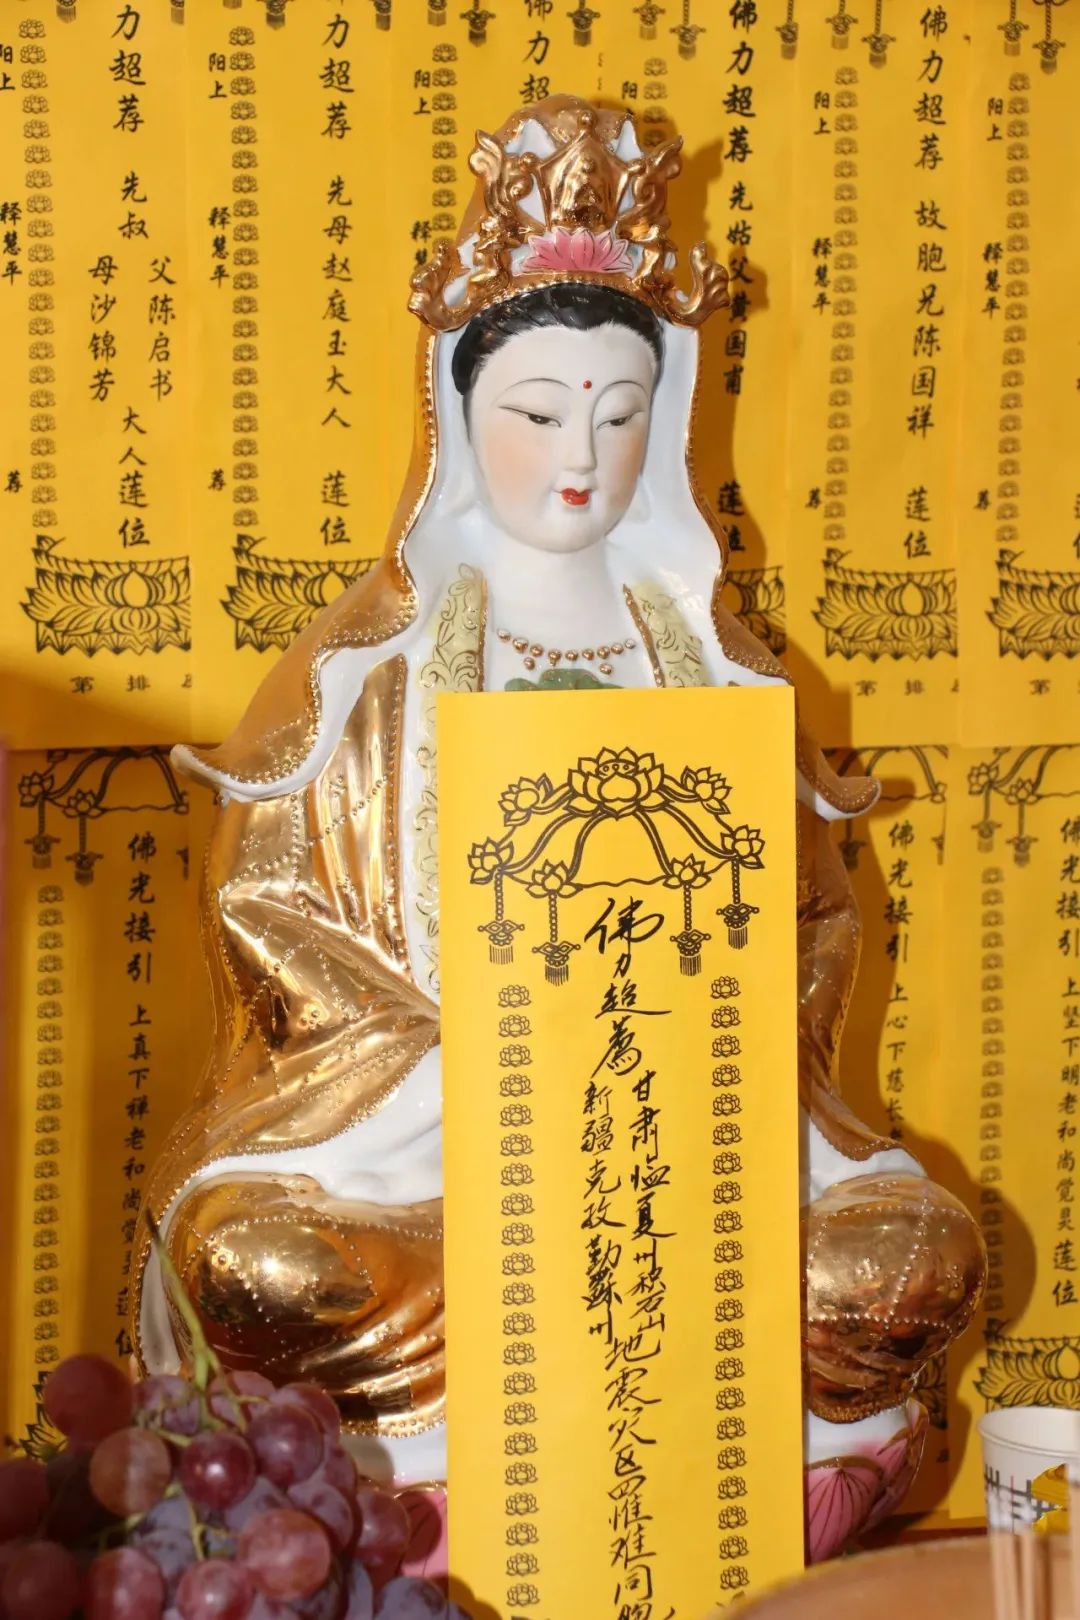 佛力超薦
甘肃临夏州积石山
新疆克孜勒蘇州
地震灾区罹难同胞
力超荐 先叔
父陈启书
母沙锦芳
大人莲位
阳上
释慧平
荐
力超荐 先母赵庭玉大人 莲位
阳上
释慧平
荐
佛力超荐
阳上
释慧
佛力超荐 先姑父黄国甫 莲位
佛力超荐 故胞兄陈国祥 莲位
阳上
释慧平
荐
阳上
释慧平
荐
第 排
第 排
第
佛光接引 上真下禅老和尚觉
佛光接引 上心下慈长
佛光接引 上坚下明老和尚觉灵 莲位